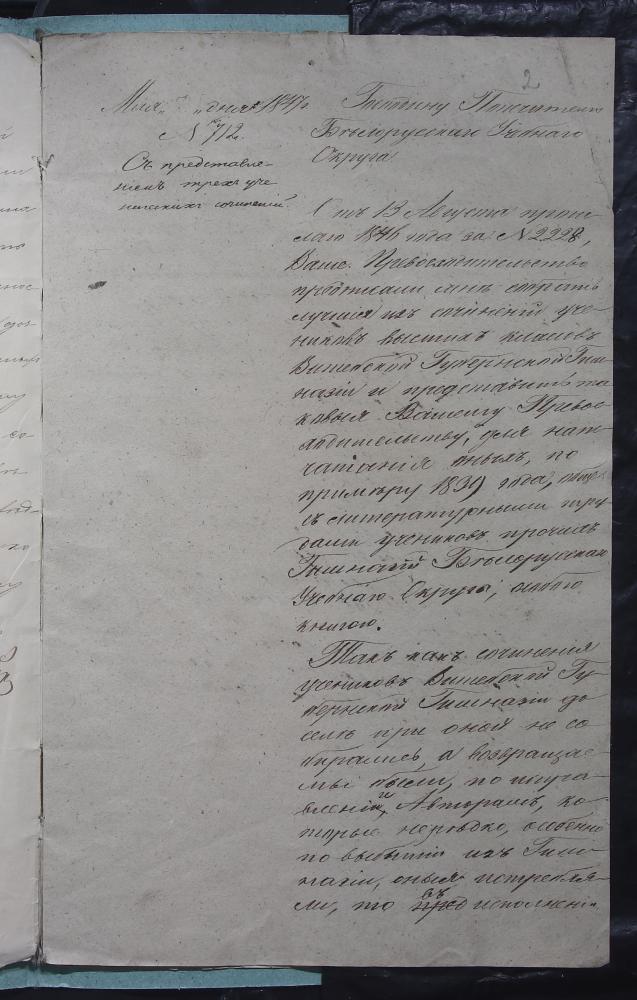 2
Мая „ „ дня 1847 г.
№ 712.
Съ представле-
ніемъ трехъ уче
ническихъ сочиненій
Господину Попечителю
Бѣлорусскаго Учебнаго
Округа
Отъ 13 Августа прош-
лаго 1846 года за № 2228,
Ваше Превосходительство
предписали мнѣ собрать
лучшія изъ сочиненій уче-
никовъ высшихъ классовъ
Витебской Губернской Гим-
назіи и представить та-
ковыя Вашему Превос
ходительству, для напе
чатанія оныхъ, по
примѣру 1839 года, вмѣстѣ
съ литературными тру-
дами учениковъ прочихъ
Гимназій Бѣлорусскаго
Учебнаго Округа, особою
книгою.
Такъ какъ сочиненія
учениковъ Витебской Гу-
бернской Гимназіи до
селѣ при оной не со
бирались, а возвращае-
мы были, по исправ-
леніи, Авторамъ, ко-
торые нерѣдко, особенно
по выбытіи изъ Гим-
назіи, оныя истребля-
ли, то въ исполненіи